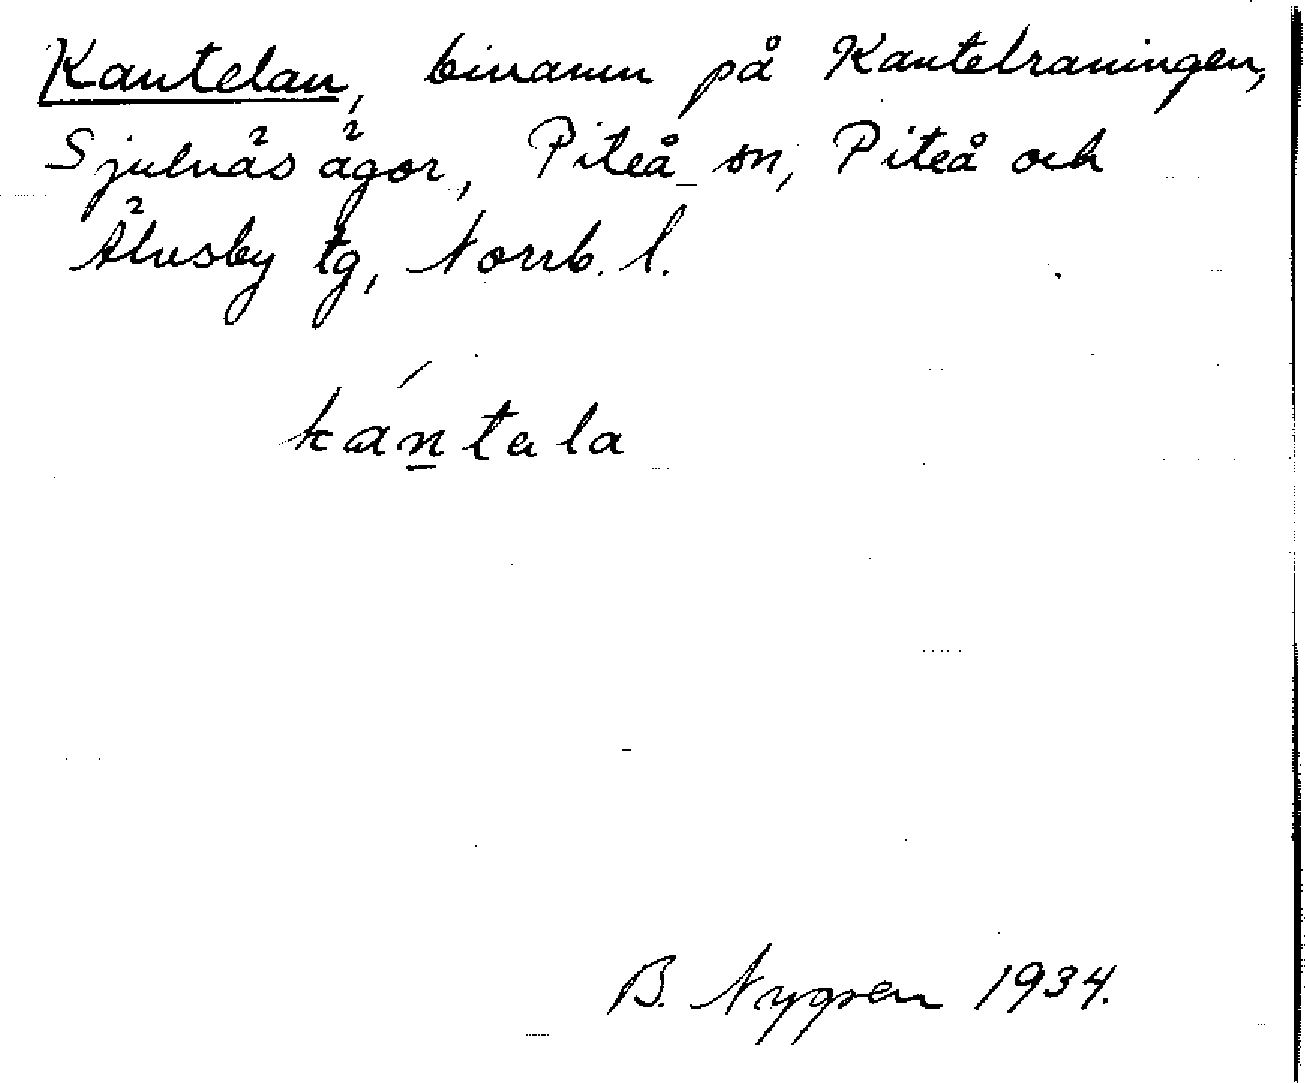 Kantelan, binamn på Kantelraningen,
Sjulnäs ägor, Piteå sn, Piteå och
Älvsby tg, Norrb. l.
kántala
B. Nygren 1934.